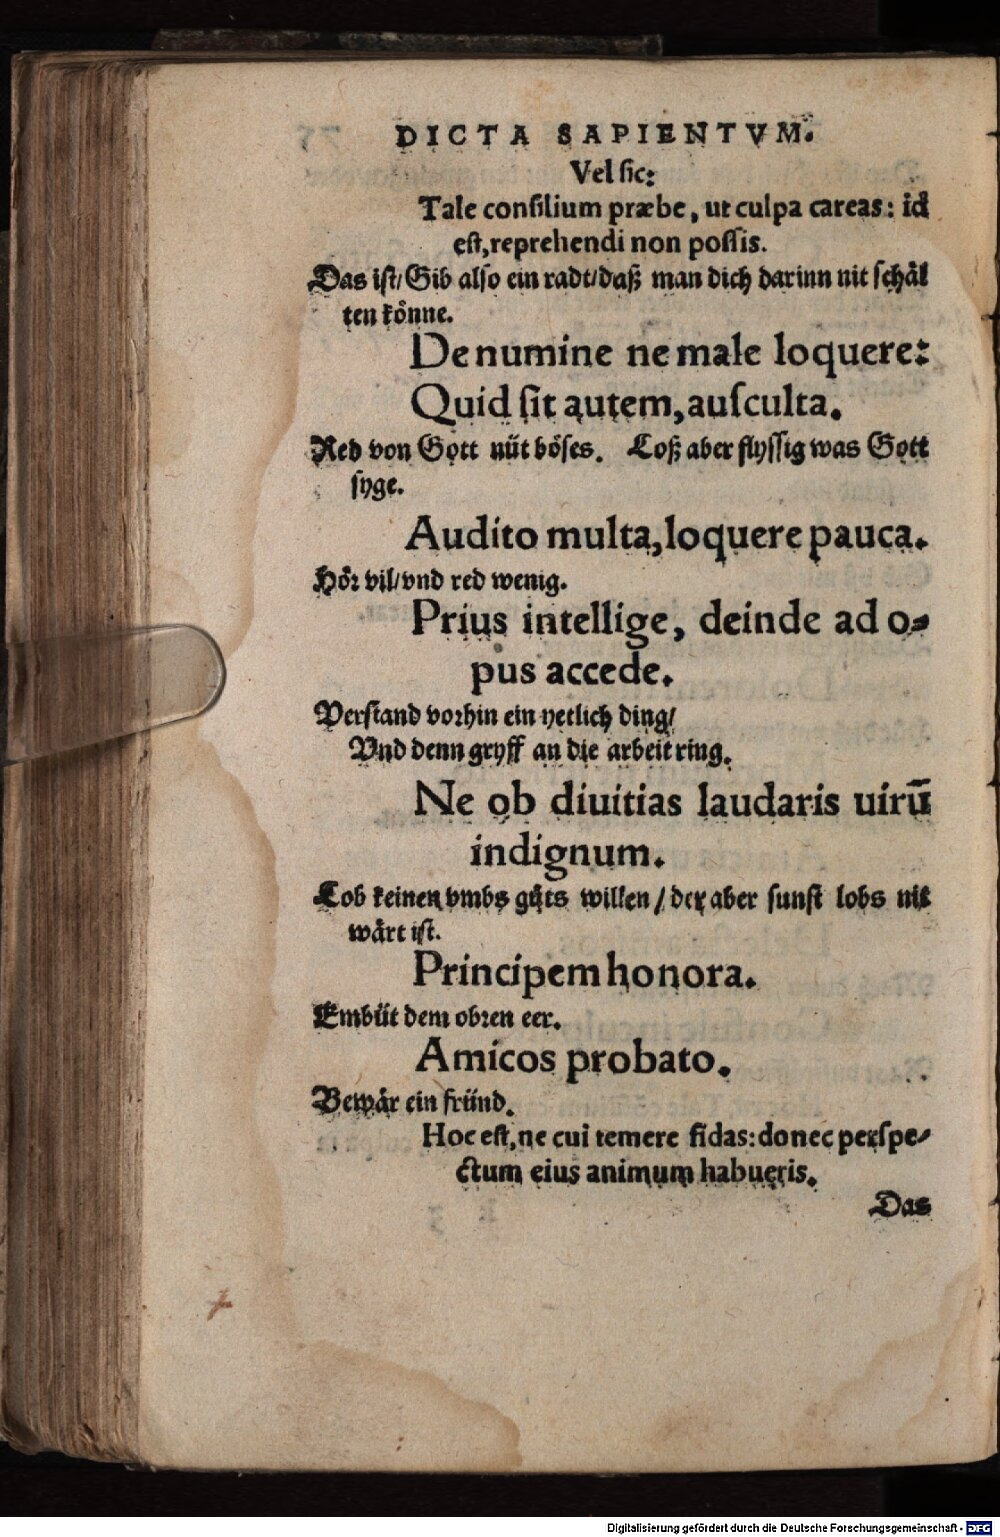 DICTA SAPIENTVM.
Vel sic:
Tale consilium præbe, ut culpa careas: id
est, reprehendi non possis.
Das ist/ Gib also ein radt/ daß man dich darinn nit schäl
ten könne.
De numine ne male loquere:
Quid sit autem, ausculta.
Red von Gott nüt böses. Loß aber flyssig was Gott
syge.
Audito multa, loquere pauca.
Hör vil/ vnd red wenig.
Prius intellige, deinde ad o⸗
pus accede.
Verstand vorhin ein yetlich ding/
Vnd denn gryff an die arbeit ring.
Ne ob diuitias laudaris uirū
indignum.
Lob keinen vmbs gůts willen / der aber sunst lobs nit
wärt ist.
Principem honora.
Embüt dem obren eer.
Amicos probato.
Bewär ein fründ.
Hoc est, ne cui temere fidas: donec perspe⸗
ctum eius animum habueris.
Das
Digitalisierung gefördert durch die Deutsche Forschungsgemeinschaft - DFG